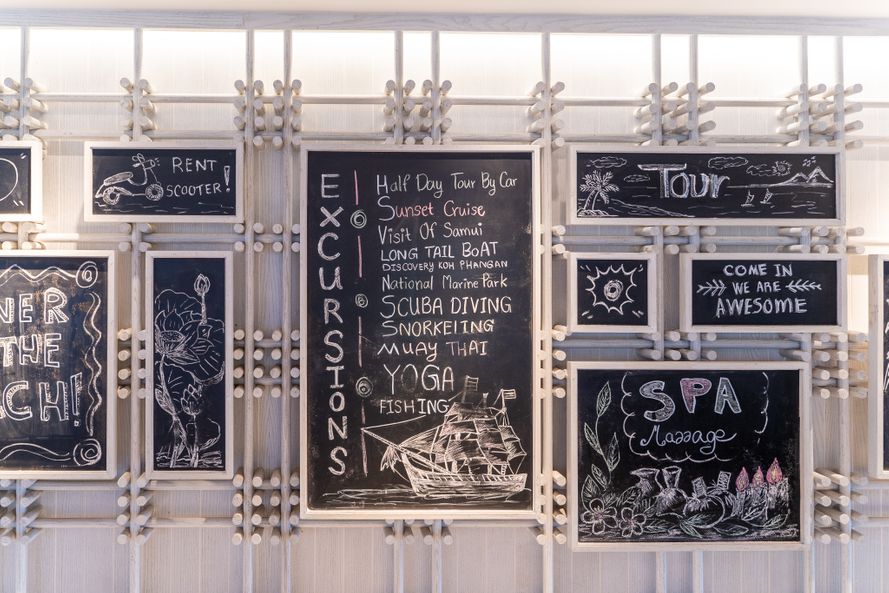 RENT
SCOOTER!
NER
THE
CH!
EXCURSIONS
Half Day Tour By Car
Sunset Cruise
Visit Of Samui
LONG TAIL BOAT
DISCOVERY KOH PHANGAN
National Marine Park
SCUBA DIVING
SNORKELING
MUAY THAI
YOGA
FISHING
TOUR
COME IN
WE ARE
AWESOME
SPA
Massage